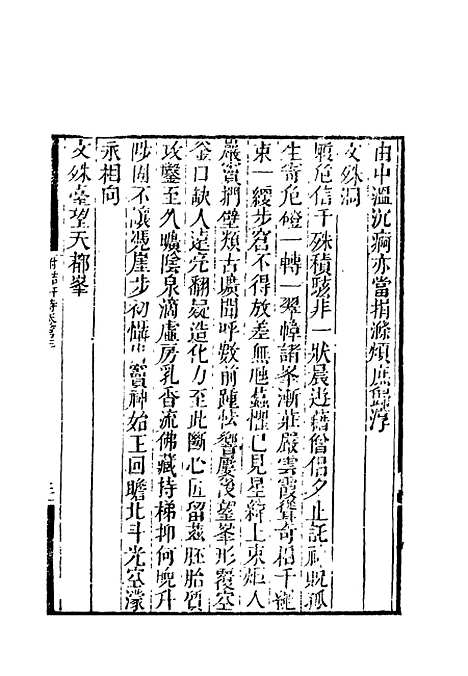 由中溫沉痾亦當捐滌煩庶能浮
文殊洞
履危信千殊積駭非一狀晨遊藉僧侶夕止託祠貺孤
生寄危磴一轉一翠幛諸峯漸莊嚴雲霞聳奇相千縆
束一綬步窘不得放差無虺蟲懼已見星辯上束炬人
巖竇捫壁類古壙聞呼數前踵怯響屢後望峯形覆空
釜口缺人遠亮翻疑造化力至此斷心匠留茲胚胎質
攻鑿至久曠陰泉滴虛房乳香流佛藏持梯抑何晚升
陟固不讓憑崖步初愼出竇神始王回瞻北斗光空濛
永相向
文殊臺望天都峯